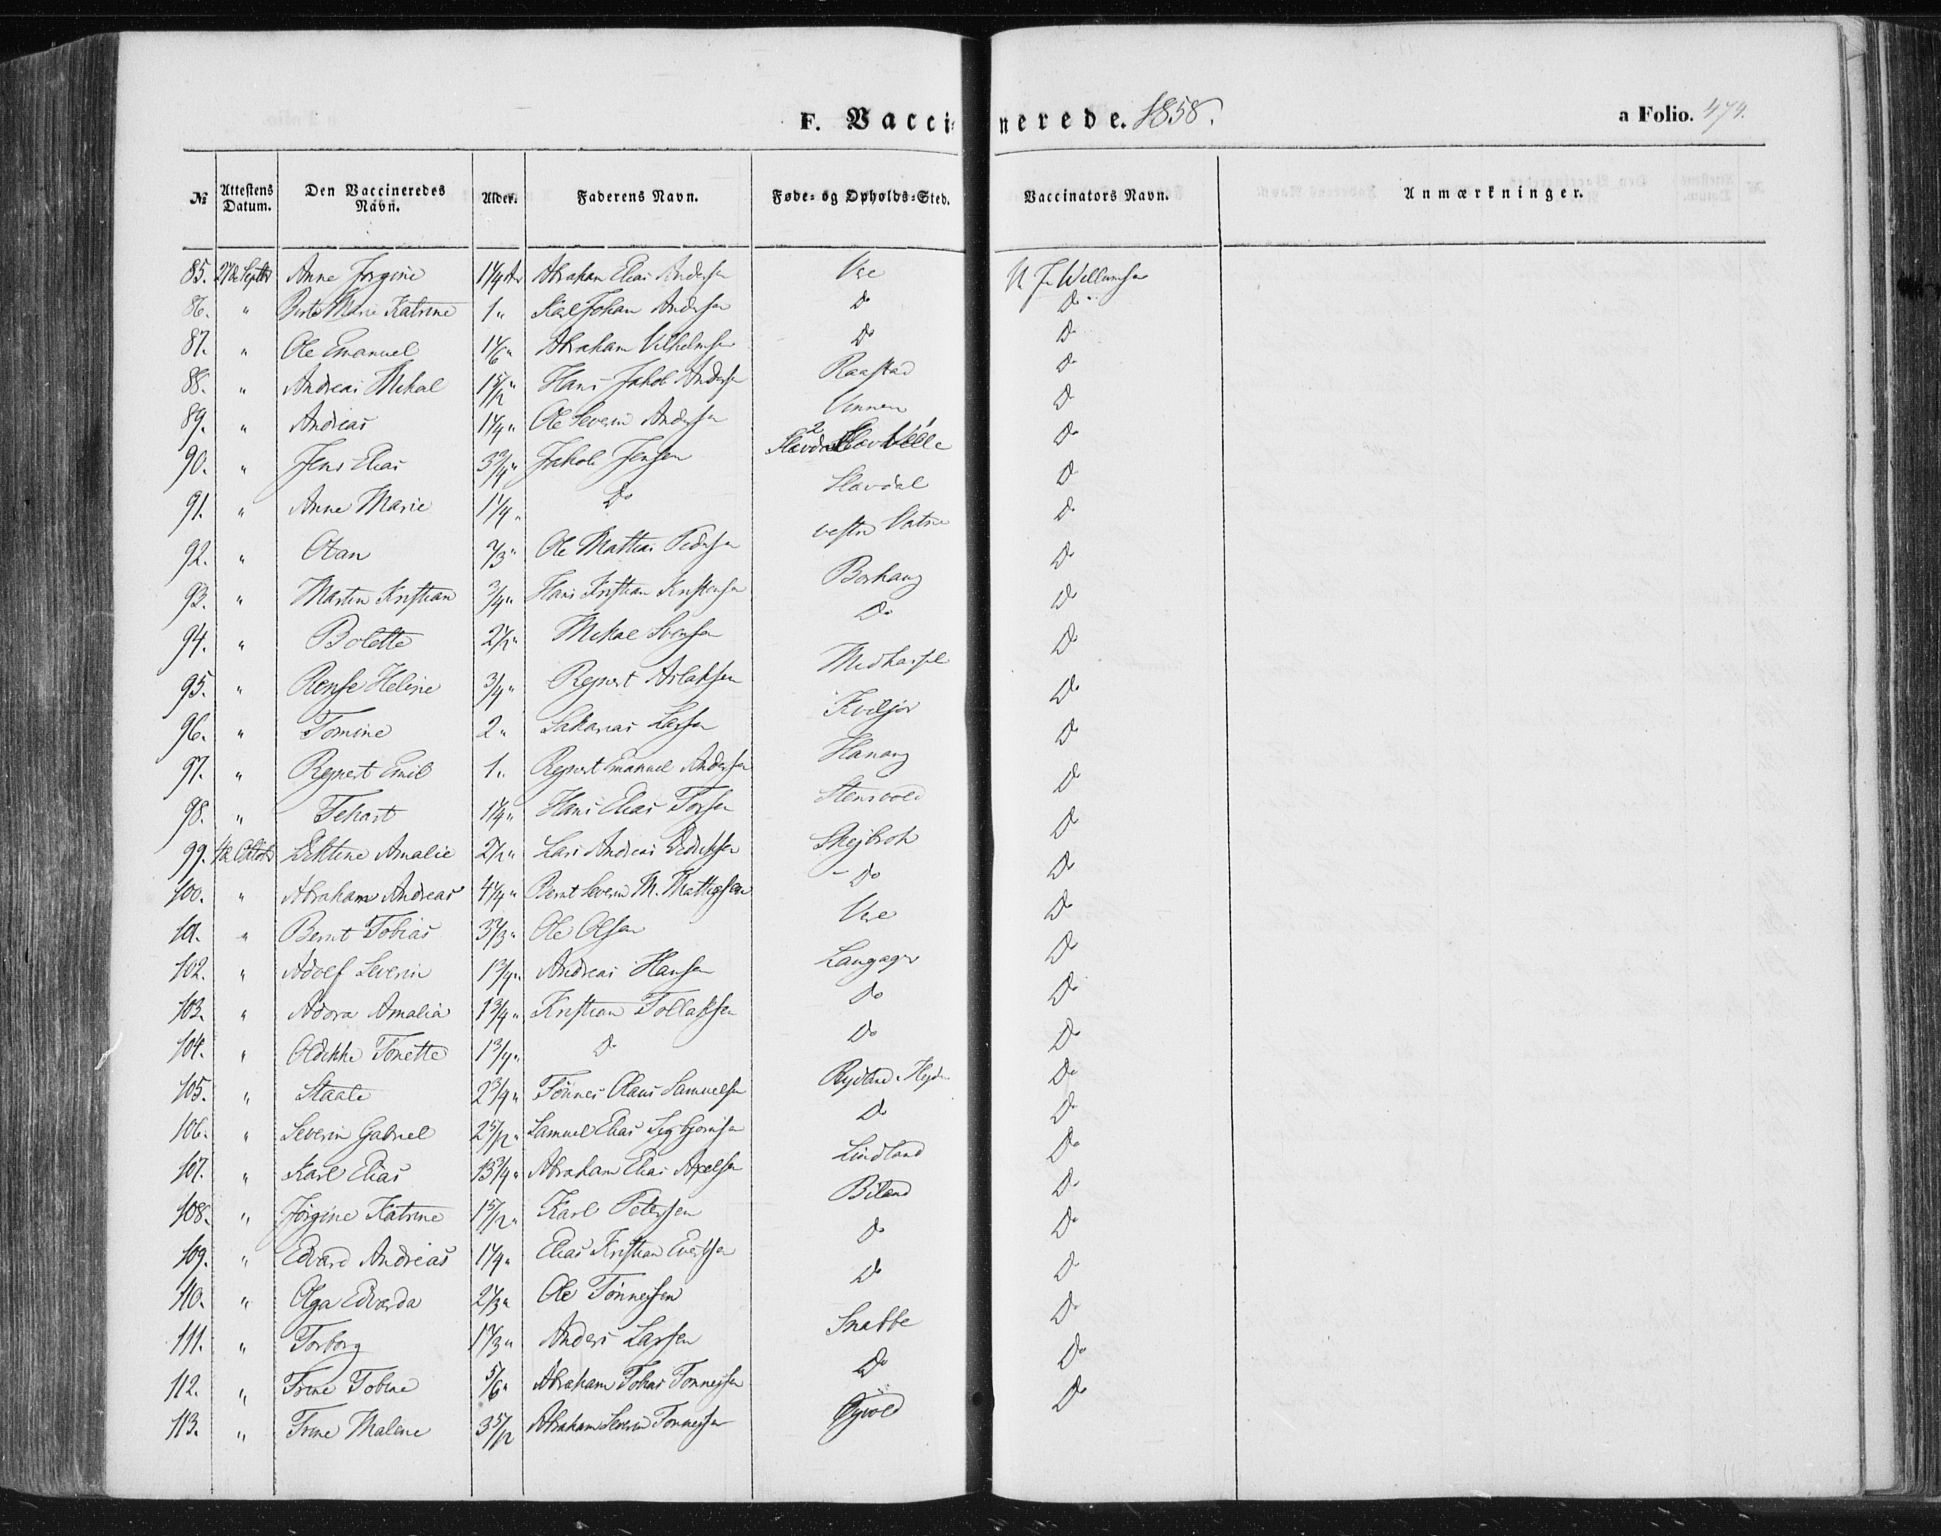 F. Vaccinerede. 1858. a Folio. 474.
№ Attestens Datum. Den Vaccineredes Navn. Alder. Faderens Navn. Føde- og Opholds-Sted. Vaccinators Navn. Anmærkninger.
85. 27de Septbr Anne Jørgine 1 1/4 Aar Abraham Elias Andersen Vee Willumsen
86. " Berte Marie Katrine 1 " Karl Johan Andersen Do Do
87. " Ole Emanuel 1 1/6 " Abraham Vilhelmsen Do Do
88. " Andreas Mikal 1 5/12 " Hans Jakob Andersen Raastad Do
89. " Andreas 1 1/4 " Ole Severin Andersen Vinnem Do
90. " Jens Elias 3 3/4 " Jakob Jensen Do
91. " Anne Marie 1 1/4 " Do Slavdal Do
92. " Otan 2/3 " Ole Mathias Pedersen vestre Vatne Do
93. " Martin Kristian 3/4 " Hans Kristian Kristensen Borhaug Do
94. " Bolette 2 1/2 " Mikal Svensen Do Do
95. " Rense Helene 3/4 " Regnert Aslaksen Midhassel Do
96. " Tomine 2 " Sakarias Larsen Kviljor Do
97. " Regnert Emil 1 " Regnert Emanuel Andersen Hanang Do
98. " Tekart 1 1/4 " Hans Elias Torsen Stensvold Do
99. 4de Octobr Dektine Amalie 2 1/2 " Lars Andreas Didriksen Skejbrok Do
100. " Abraham Andreas 4 1/4 " Bernt Severin M. Mathiesen - Do Do
101. " Bernt Tobias 3 2/3 " Ole Olsen Vee Do
102. " Adolf Severin 1 3/4 " Andreas Hansen Langager Do
103. " Adora Amalia 1 3/4 " Kristian Tollaksen Do Do
104. " Oldikke Tonette 1 3/4 " Do Do Do
105. " Staale 2 3/4 " Tönnes Olaus Samuelsen Rydland Do
106. " Severin Gabriel 2 5/12 " Samuel Elias Sigbjørnsen Do Do
107. " Karl Elias 13 3/4 " Abraham Elias Axelsen Lindland Do
108. " Jørgine Katrine 1 5/12 " Karl Petersen Biland Do
109. " Edvard Andreas 1 1/4 " Elias Kristian Evertsen Do Do
110. " Olga Edvarda 2 2/3 " Ole Tønnessen Do Do
111. " Torborg 1 2/3 " Anders Larsen Snabbe Do
112. " Trine Tobine 5/6 " Abraham Tobias Tønnessen Do Do
113. " Trine Malene 3 5/12 Abraham Severin Tønnessen Øjvold